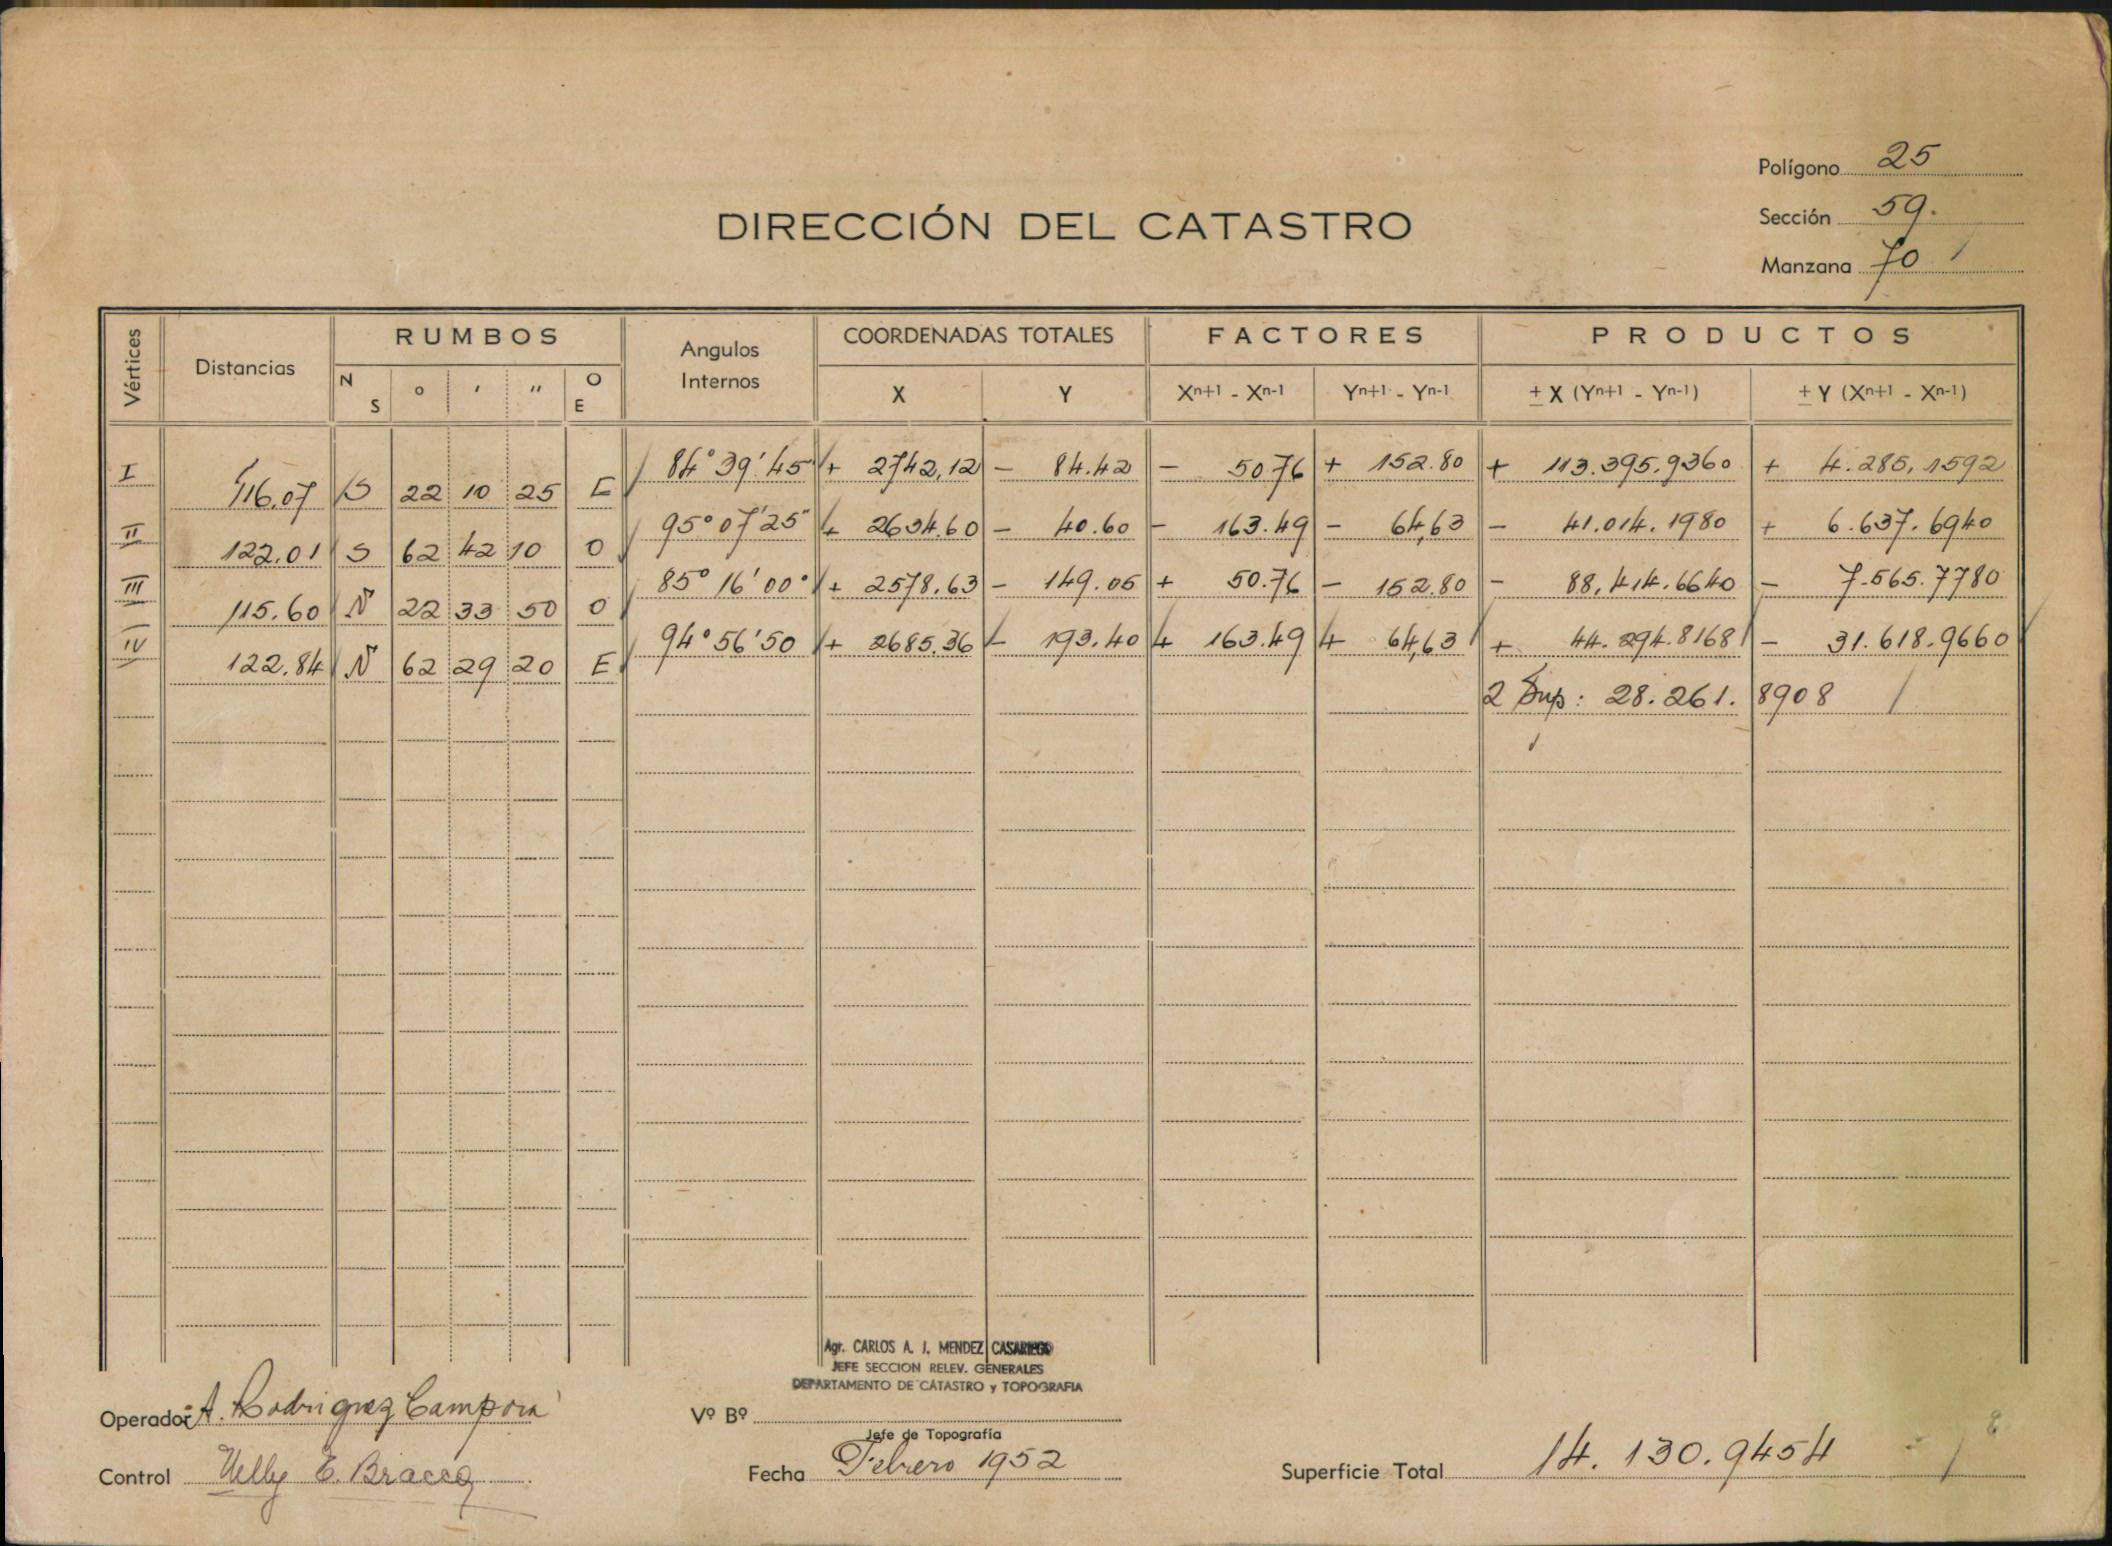 Polígono 25
Sección 59.
Manzana 70
DIRECCIÓN DEL CATASTRO
Vértices Distancias RUMBOS Angulos Internos COORDENADAS TOTALES FACTORES PRODUCTOS
N S ° ' " O E X Y Xn+1 - Xn-1 Yn+1 - Yn-1 ± X (Yn+1 - Yn-1) ± Y (Xn+1 - Xn-1)
I 116.07 S 22 10 25 E 84° 39' 45" + 2742,12 - 84.42 - 50 76 + 152.80 + 113.395.9360 + 4.285,1592
II 122.01 S 62 42 10 O 95° 07' 25" + 2634.60 - 40.60 - 163.49 - 64,63 - 41.014.1980 + 6.637.6940
III 115.60 N 22 33 50 O 85° 16' 00" + 2578.63 - 149.05 + 50.76 - 152.80 - 88.414.6640 - 7.565.7780
IV 122.84 N 62 29 20 E 94° 56' 50 + 2685.36 - 193.40 + 163.49 + 64,63 + 44.294.8168 - 31.618.9660
2 Sup: 28.261.8908
Agr. CARLOS A. J. MENDEZ CASARIEGO
JEFE SECCION RELEV. GENERALES
DEPARTAMENTO DE CATASTRO y TOPOGRAFIA
Operador A. Rodriguez Campora
Vº Bº
Jefe de Topografía
Control Nelly E. Bracco
Fecha Febrero 1952
Superficie Total 14.130.9454